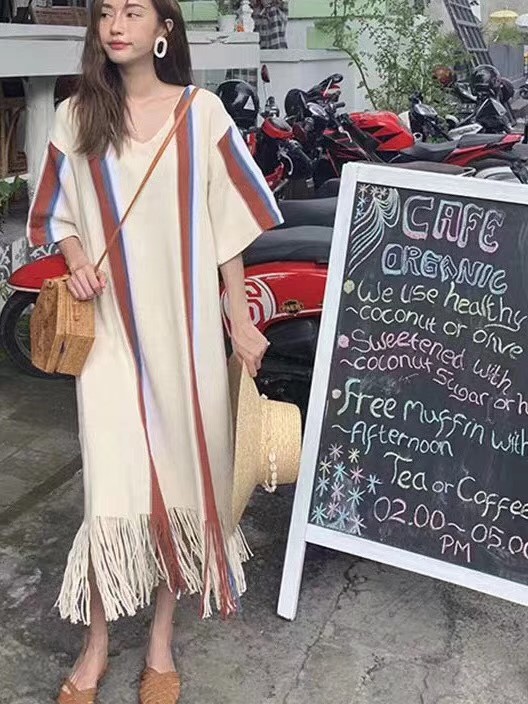 CAFE
ORGANIC
We use healthy
~coconut or olive
Sweetened with
~coconut Sugar or h
free Muffin with
~Afternoon
Tea or Coffee
02.00~05.00
PM